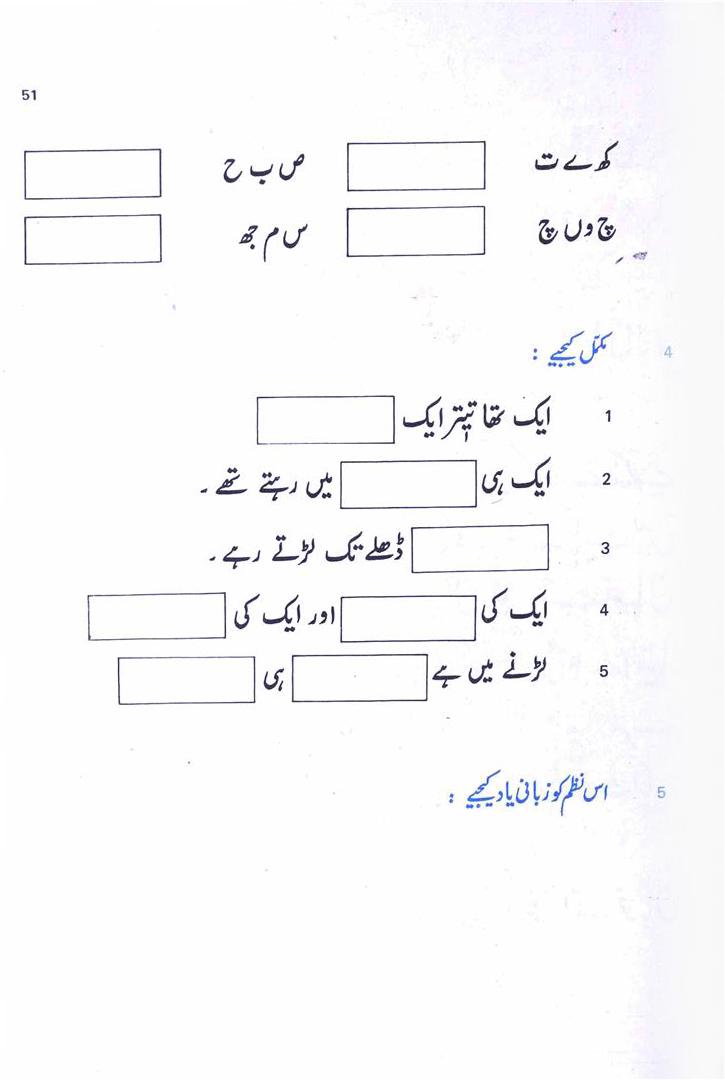 51
کھ ے ت ص ب ح
چ و ں چ س م جھ
4 مکمّل کیجیے :
1 ایک تھا تیتر ایک
2 ایک ہی میں رہتے تھے ۔
3 ڈھلے تک لڑتے رہے ۔
4 ایک کی اور ایک کی
5 لڑنے میں ہے ہی
5 اس نظم کو زبانی یاد کیجیے :